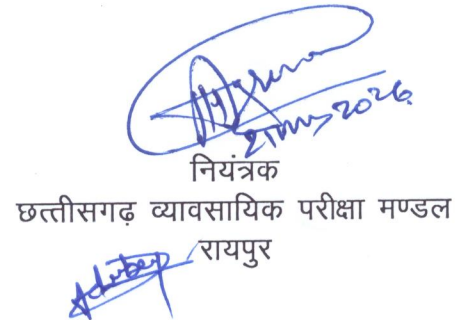 2026
नियंत्रक
छत्तीसगढ़ व्यावसायिक परीक्षा मण्डल
रायपुर